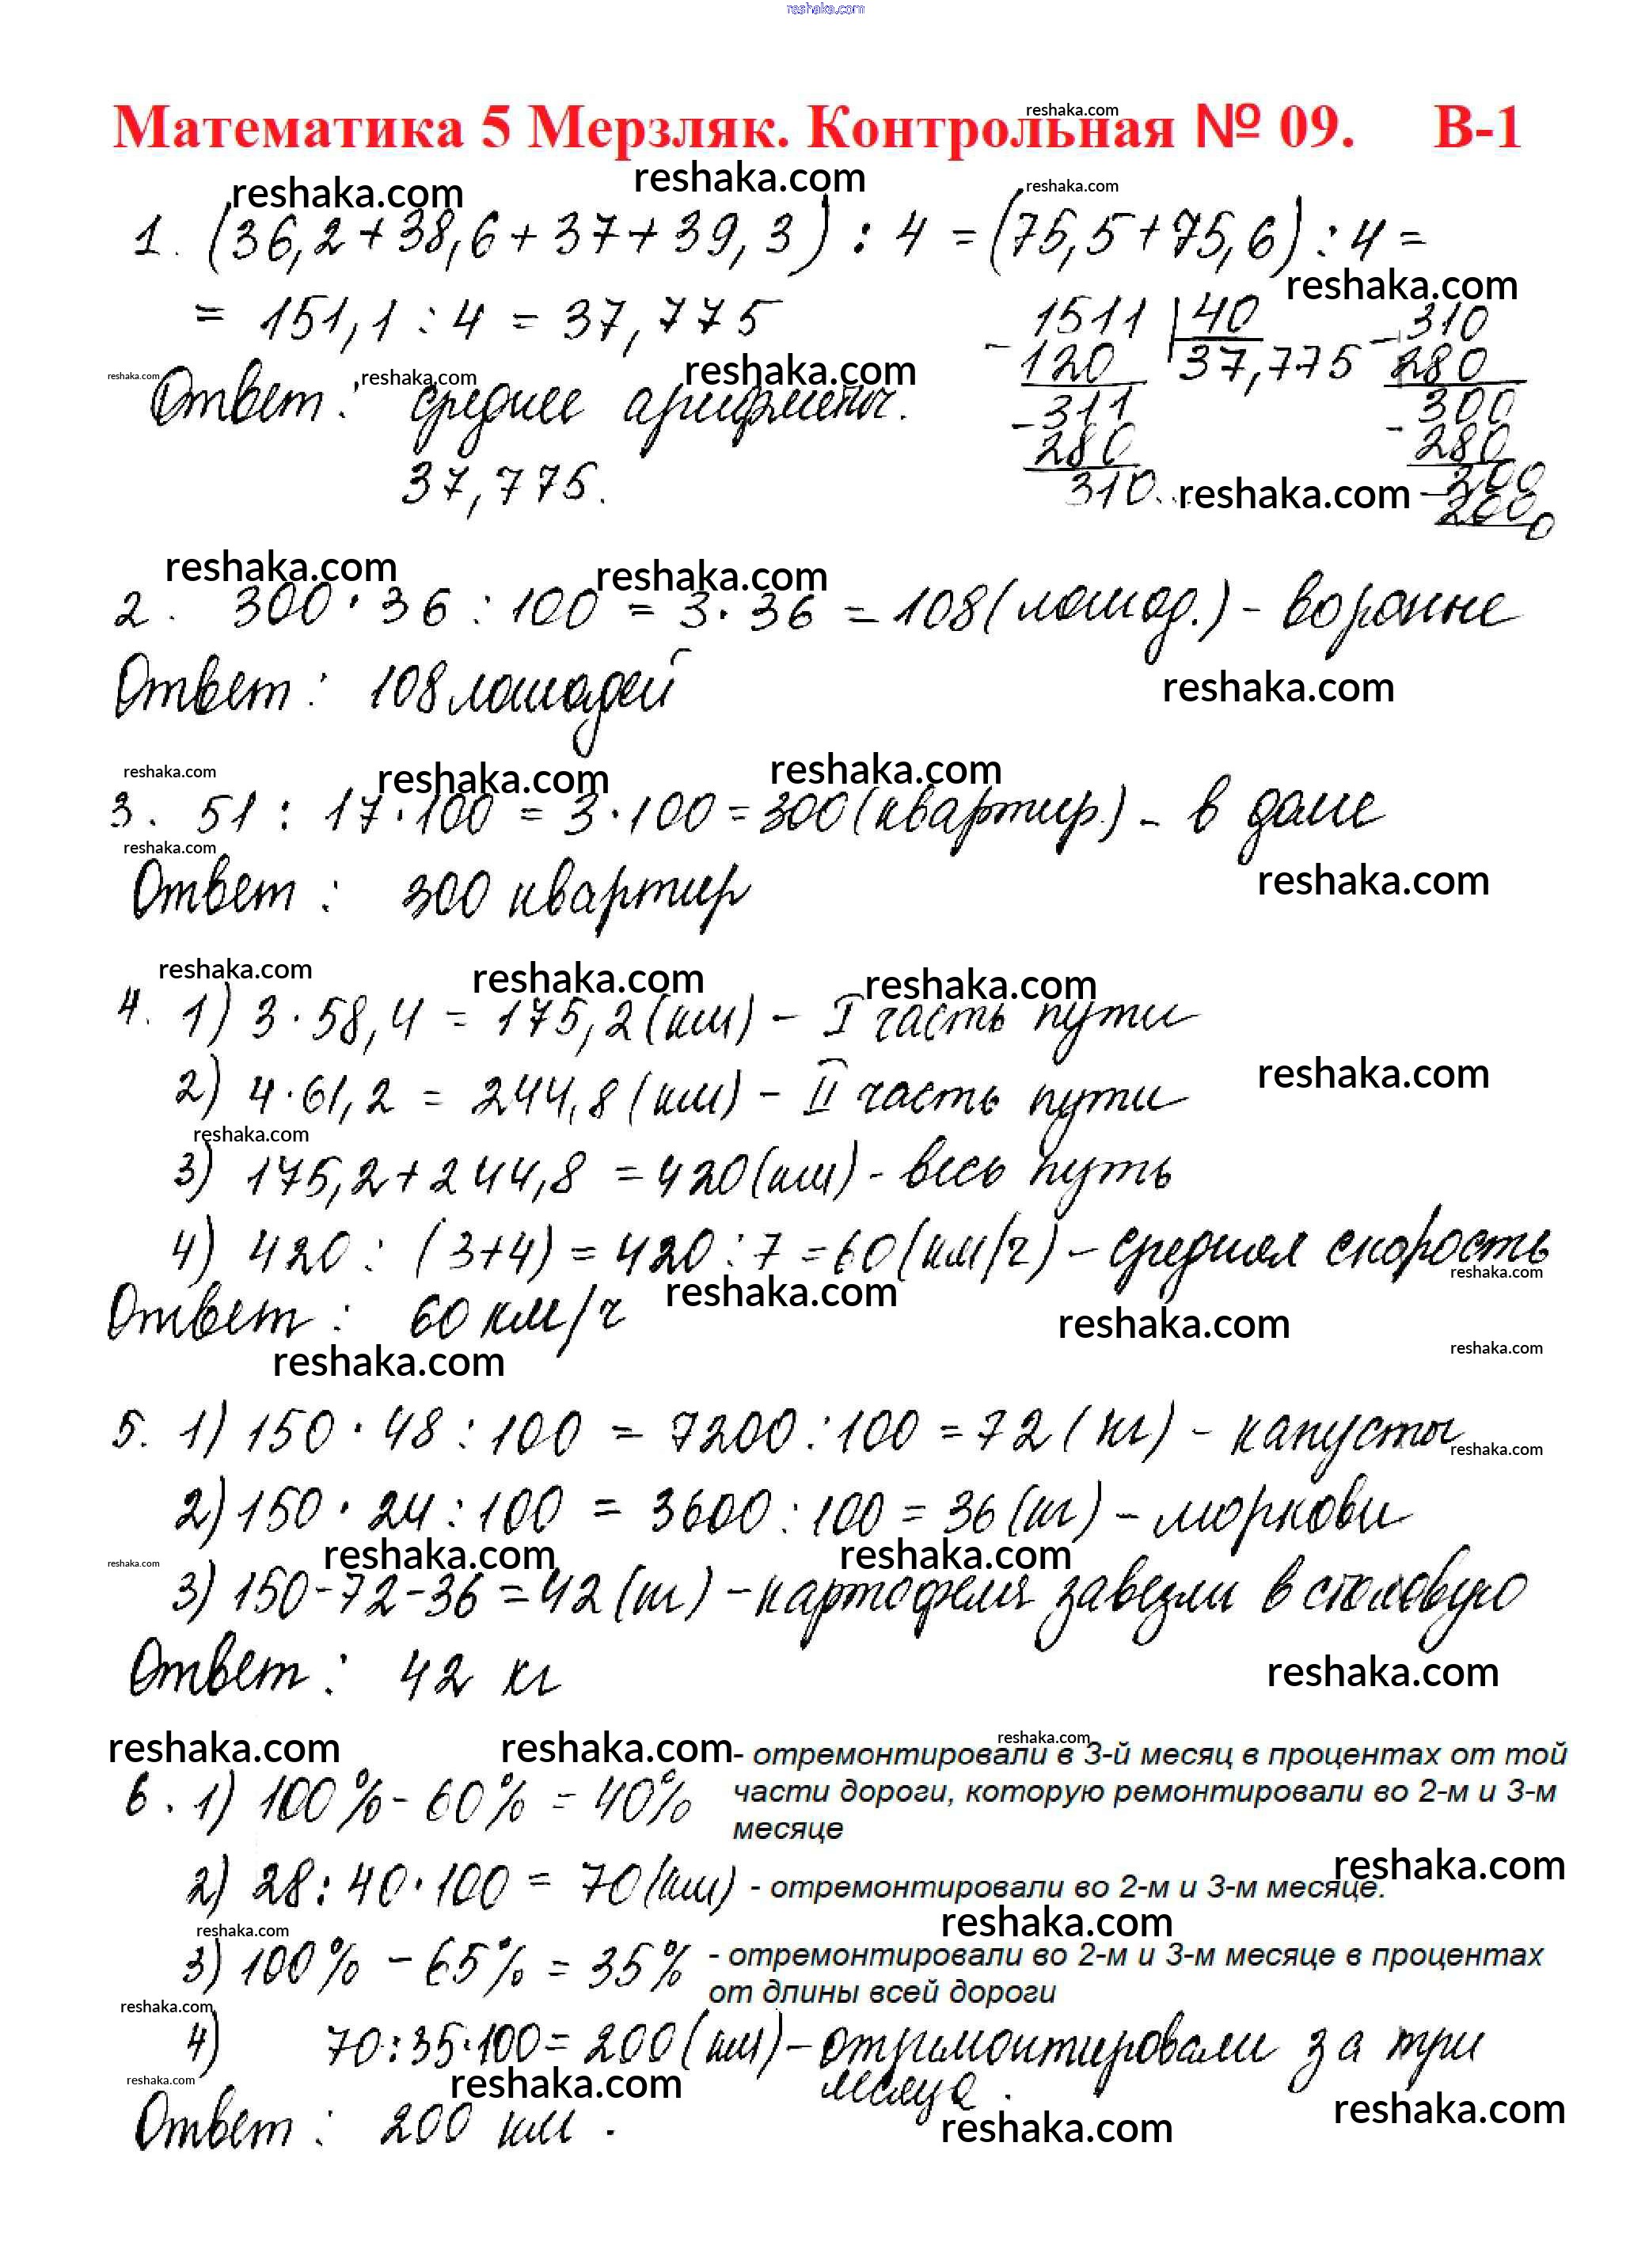 reshaka.com
Математика 5 Мерзляк. Контрольная № 09. В-1
reshaka.com
reshaka.com reshaka.com reshaka.com
1. (36,2+38,6+37+39,3) : 4 = (75,5+75,6) : 4 =
reshaka.com
= 151,1 : 4 = 37,775
1511 40 - 310
- 120 37,775 280
reshaka.com reshaka.com reshaka.com
Ответ: среднее арифметич.
- 311 300
280 - 280
37,775. 310.. reshaka.com - 200
200
0
reshaka.com reshaka.com
2. 300 · 36 : 100 = 3 · 36 = 108 (лошад.) - вороные
Ответ: 108 лошадей reshaka.com
reshaka.com reshaka.com reshaka.com
3. 51 : 17 · 100 = 3 · 100 = 300 (квартир) - в доме
reshaka.com
Ответ: 300 квартир reshaka.com
reshaka.com reshaka.com reshaka.com
4. 1) 3 · 58,4 = 175,2 (км) - I часть пути
reshaka.com
2) 4 · 61,2 = 244,8 (км) - II часть пути
reshaka.com
3) 175,2 + 244,8 = 420 (км) - весь путь
4) 420 : (3+4) = 420 : 7 = 60 (км/ч) - средняя скорость
reshaka.com reshaka.com
Ответ: 60 км/ч reshaka.com
reshaka.com reshaka.com
5. 1) 150 · 48 : 100 = 7200 : 100 = 72 (кг) - капусты
reshaka.com
2) 150 · 24 : 100 = 3600 : 100 = 36 (кг) - моркови
reshaka.com reshaka.com reshaka.com
3) 150 - 72 - 36 = 42 (кг) - картофеля завезли в столовую
Ответ: 42 кг reshaka.com
reshaka.com reshaka.com reshaka.com
6. 1) 100% - 60% = 40% - отремонтировали в 3-й месяц в процентах от той
части дороги, которую ремонтировали во 2-м и 3-м
месяце
reshaka.com
2) 28 : 40 · 100 = 70 (км) - отремонтировали во 2-м и 3-м месяце.
reshaka.com reshaka.com
3) 100% - 65% = 35% - отремонтировали во 2-м и 3-м месяце в процентах
от длины всей дороги
reshaka.com
4) 70 : 35 · 100 = 200 (км) - отримонтировали за три
месяца.
reshaka.com reshaka.com reshaka.com
Ответ: 200 км. reshaka.com